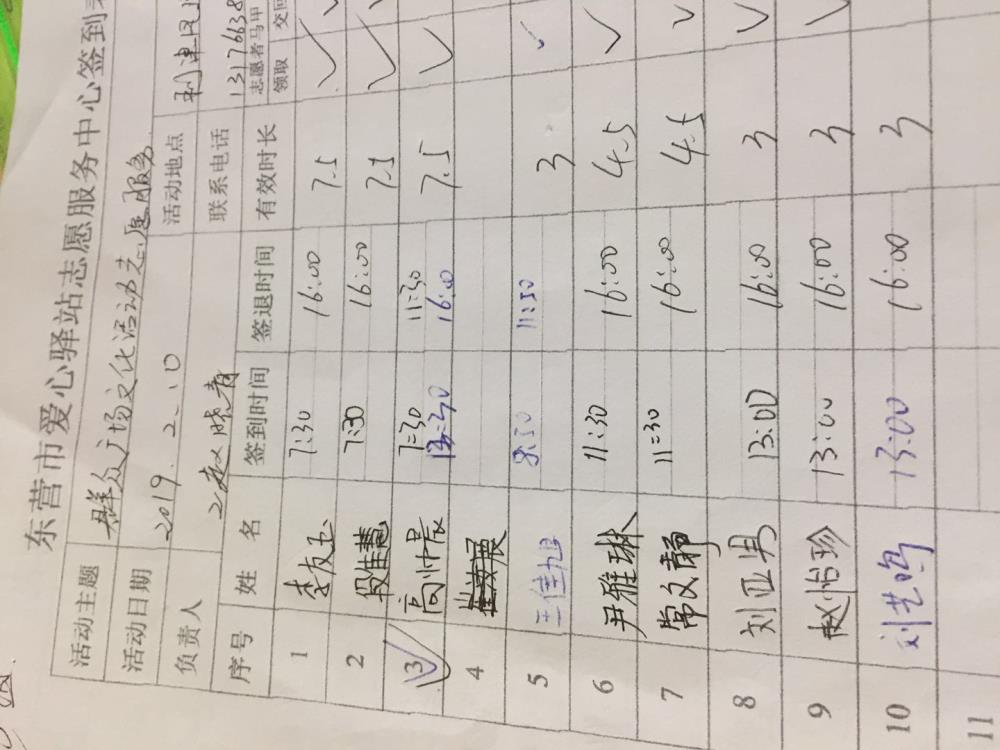 东营市爱心驿站志愿服务中心签到
活动主题 群众广场文化活动志愿服务
活动日期 2019.2.10 活动地点
负责人 赵晓青 联系电话 13176638
序号 姓名 签到时间 签退时间 有效时长 志愿者马甲 领取 交回
1 李友玉 7:30 16:00 7.5 ✓ ✓
2 段佳慧 7:30 16:00 7.5 ✓ ✓
3 高帅辰 7:30 11:30 7.5 ✓
13:30 16:00
4
5 王佳旭 8:30 11:30 3 ✓
6 尹雅琳 11:30 16:00 4.5 ✓
7 常文静 11:30 16:00 4.5 ✓
8 刘亚男 13:00 16:00 3 ✓
9 赵怡珍 13:00 16:00 3 ✓
10 刘艺鸣 13:00 16:00 3
11